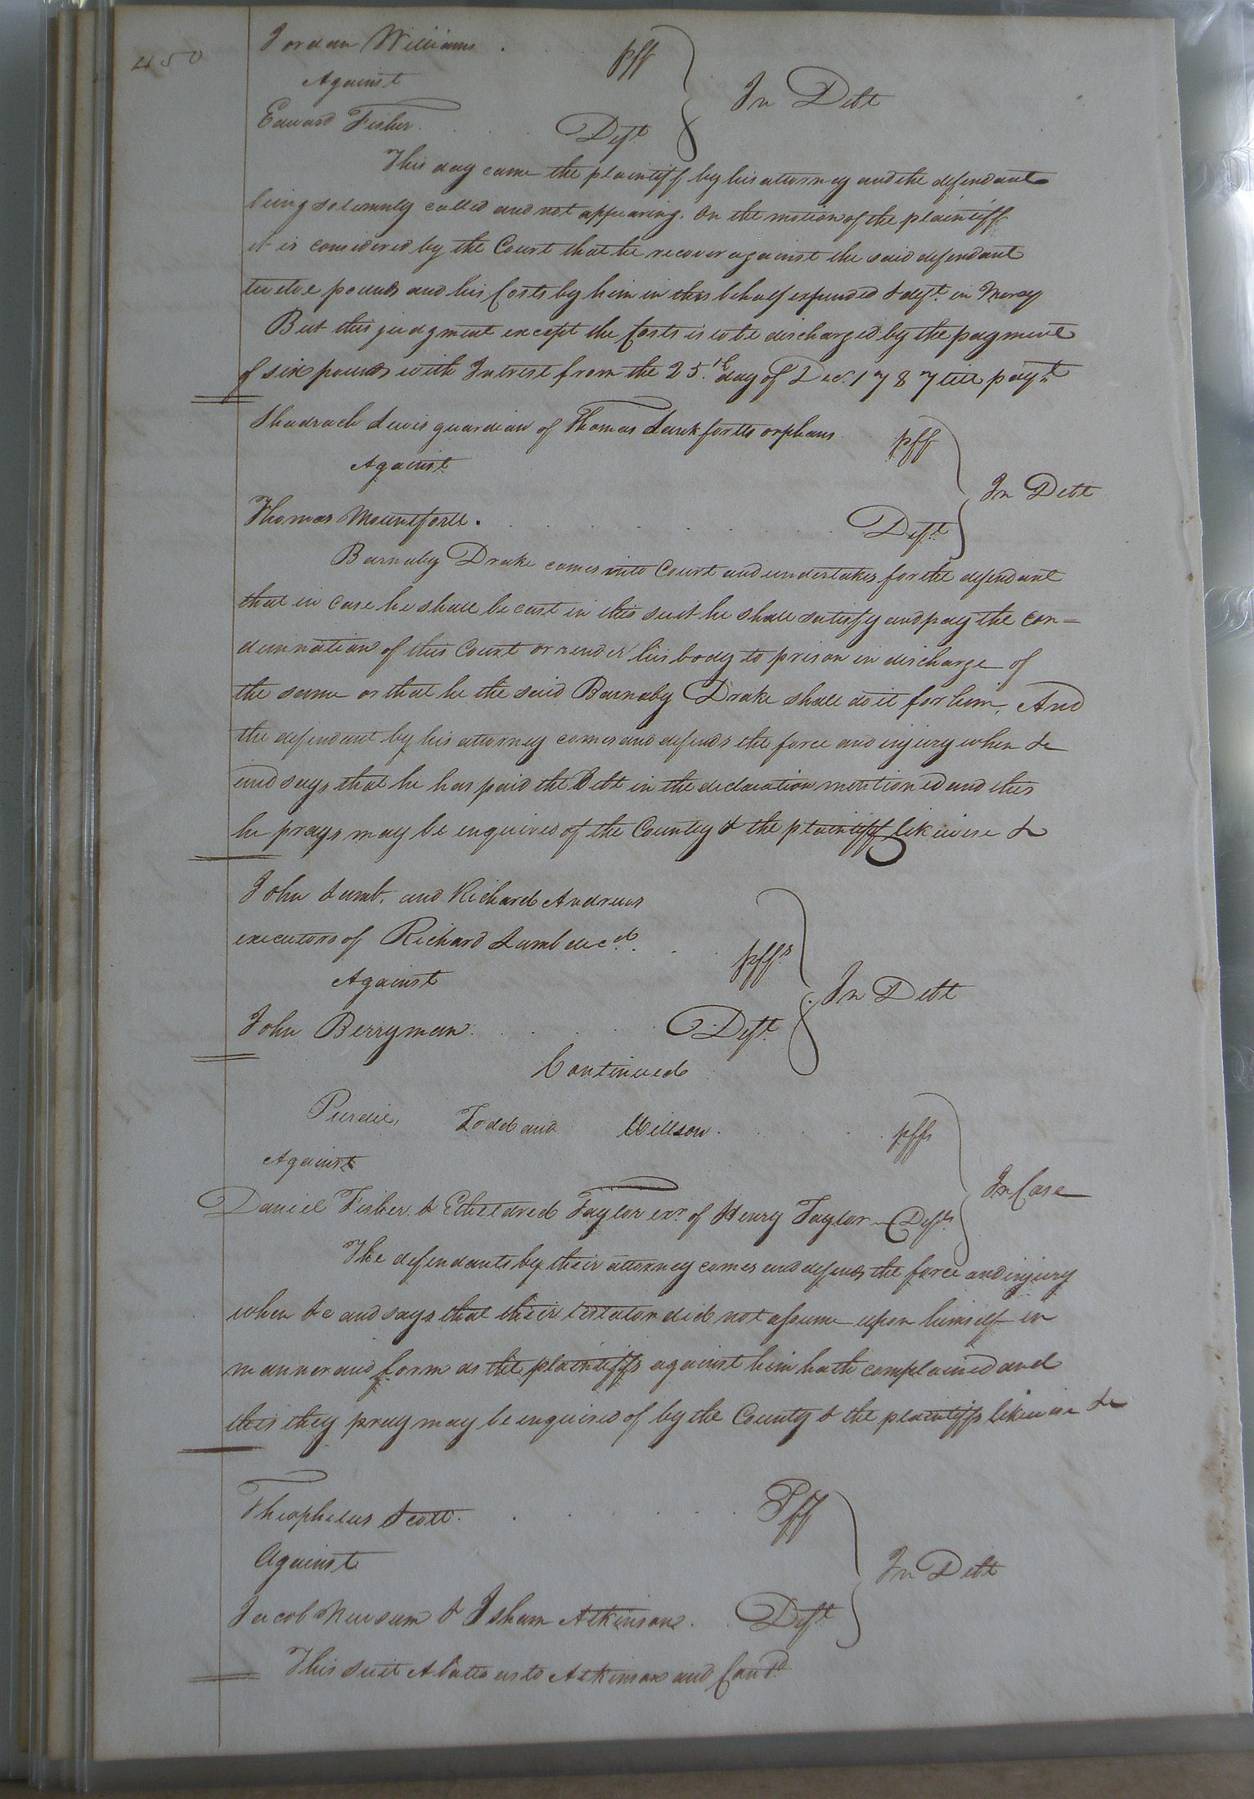 450
Jordan Williams . pff
Against
In Debt
Edward Fisher. . . Deft
This day came the plaintiff by his attorney and the defendant
being solemnly called and not appearing. On the motion of the plaintiff
it is considered by the Court that he recover against the said defendant
twelve pounds and his Costs by him in this behalf expended & deft. in Mercy
But this judgment except the Costs is to be discharged by the payment
of six pounds with Interest from the 25.th day of Decr. 1787 till paymt
Shadrach Lewis guardian of Thomas Lankfords orphans pff
Against
In Debt
Thomas Mountfort. . . . . . . . Deft
Barnaby Drake comes into Court and undertakes for the defendant
that in case he shall be cast in this suit he shall satisfy and pay the con=
demnation of this Court or render his body to prison in discharge of
the same or that he the said Barnaby Drake shall do it for him. And
the defendant by his attorney comes and defends the force and injury when &c
and says that he has paid the Debt in the declaration mentioned and this
he prays may be enquired of the County & the plaintiff likewise &c
John Lamb, and Richard Andrews
executors of Richard Lamb decd. . . pffs
Against
In Debt
John Berryman. . . . Deft.
Continued
Purdie, Todd and Willson. . . . pffs
Against
In Case
Daniel Fisher. & Etheldred Taylor exr. of Henry Taylor Defts
The defendants by their attorney comes and defends the force and injury
when &c and says that their testator did not assume upon himself in
manner and form as the plaintiffs against him hath complained and
this they pray may be enquired of by the County & the plaintiffs likewise &c
Theophelus Scott. . . . . . Pff
Against
In Debt
Jacob Newsum & Isham Atkinson. . Deft
This suit Abates as to Atkinson and Contd